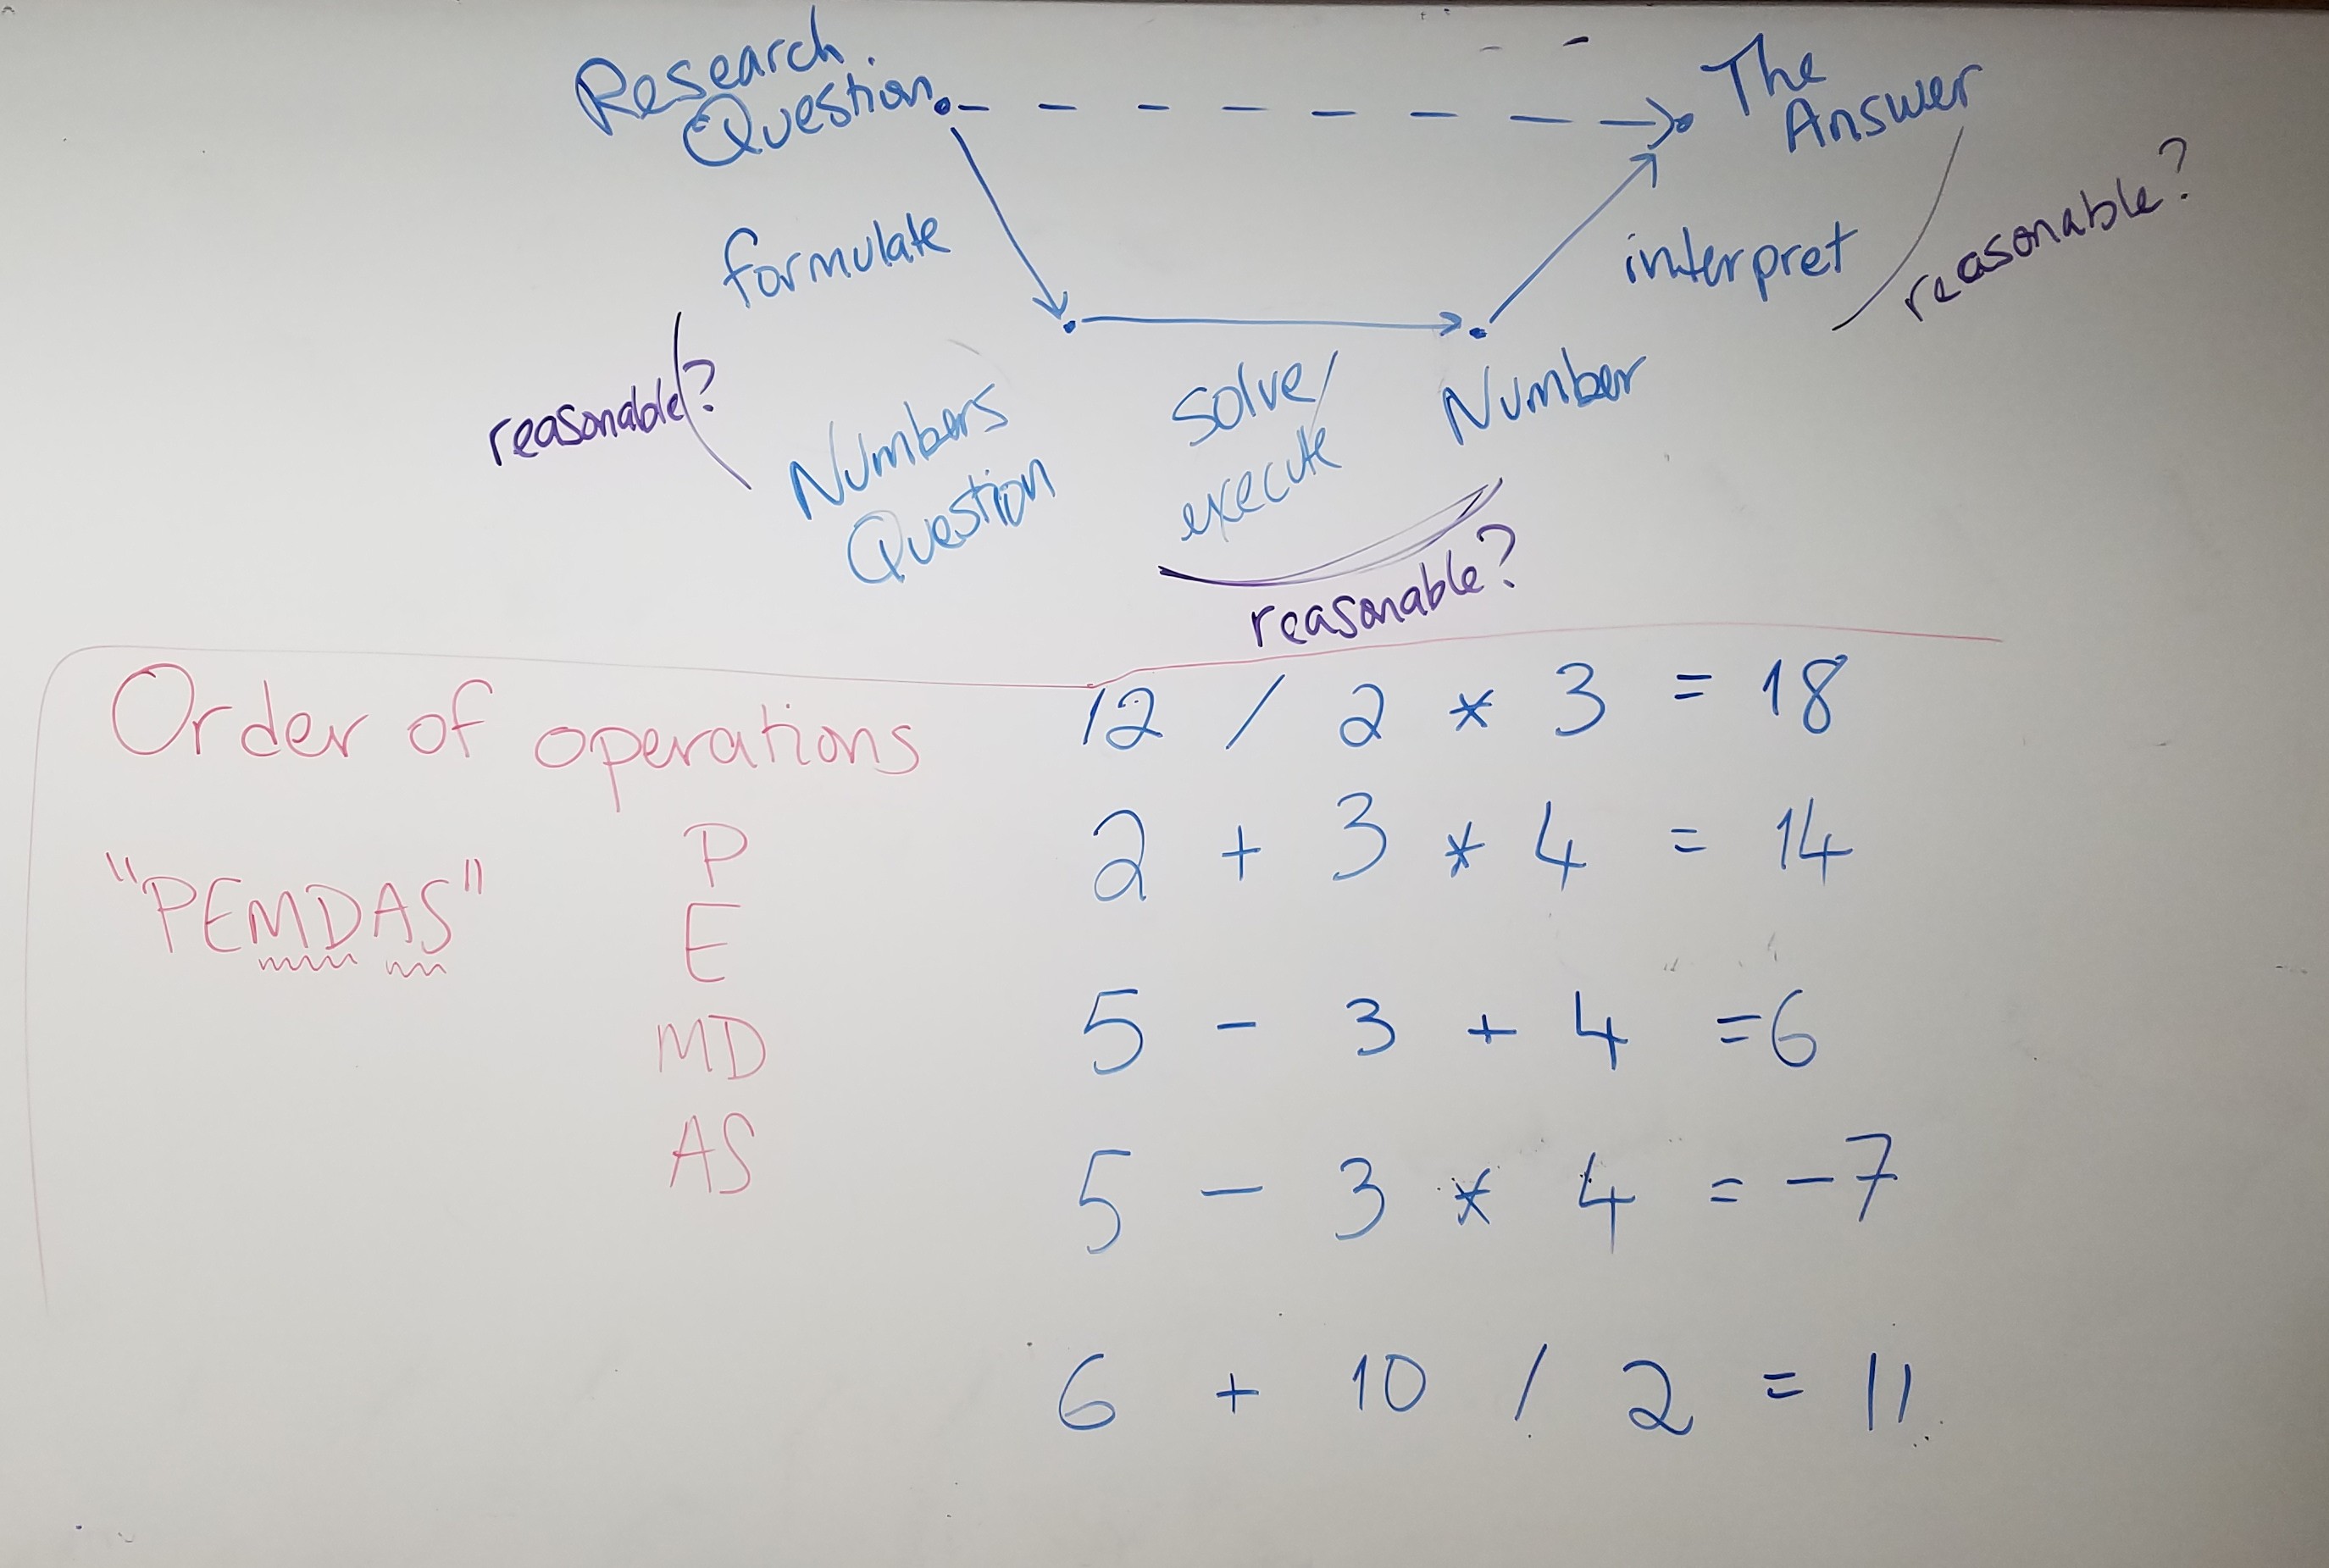 Research
Question
The
Answer
formulate
interpret
reasonable?
reasonable?
Numbers
Question
solve/
execute
Number
reasonable?
Order of operations
"PEMDAS"
P
E
MD
AS
12 / 2 * 3 = 18
2 + 3 * 4 = 14
5 - 3 + 4 = 6
5 - 3 * 4 = -7
6 + 10 / 2 = 11